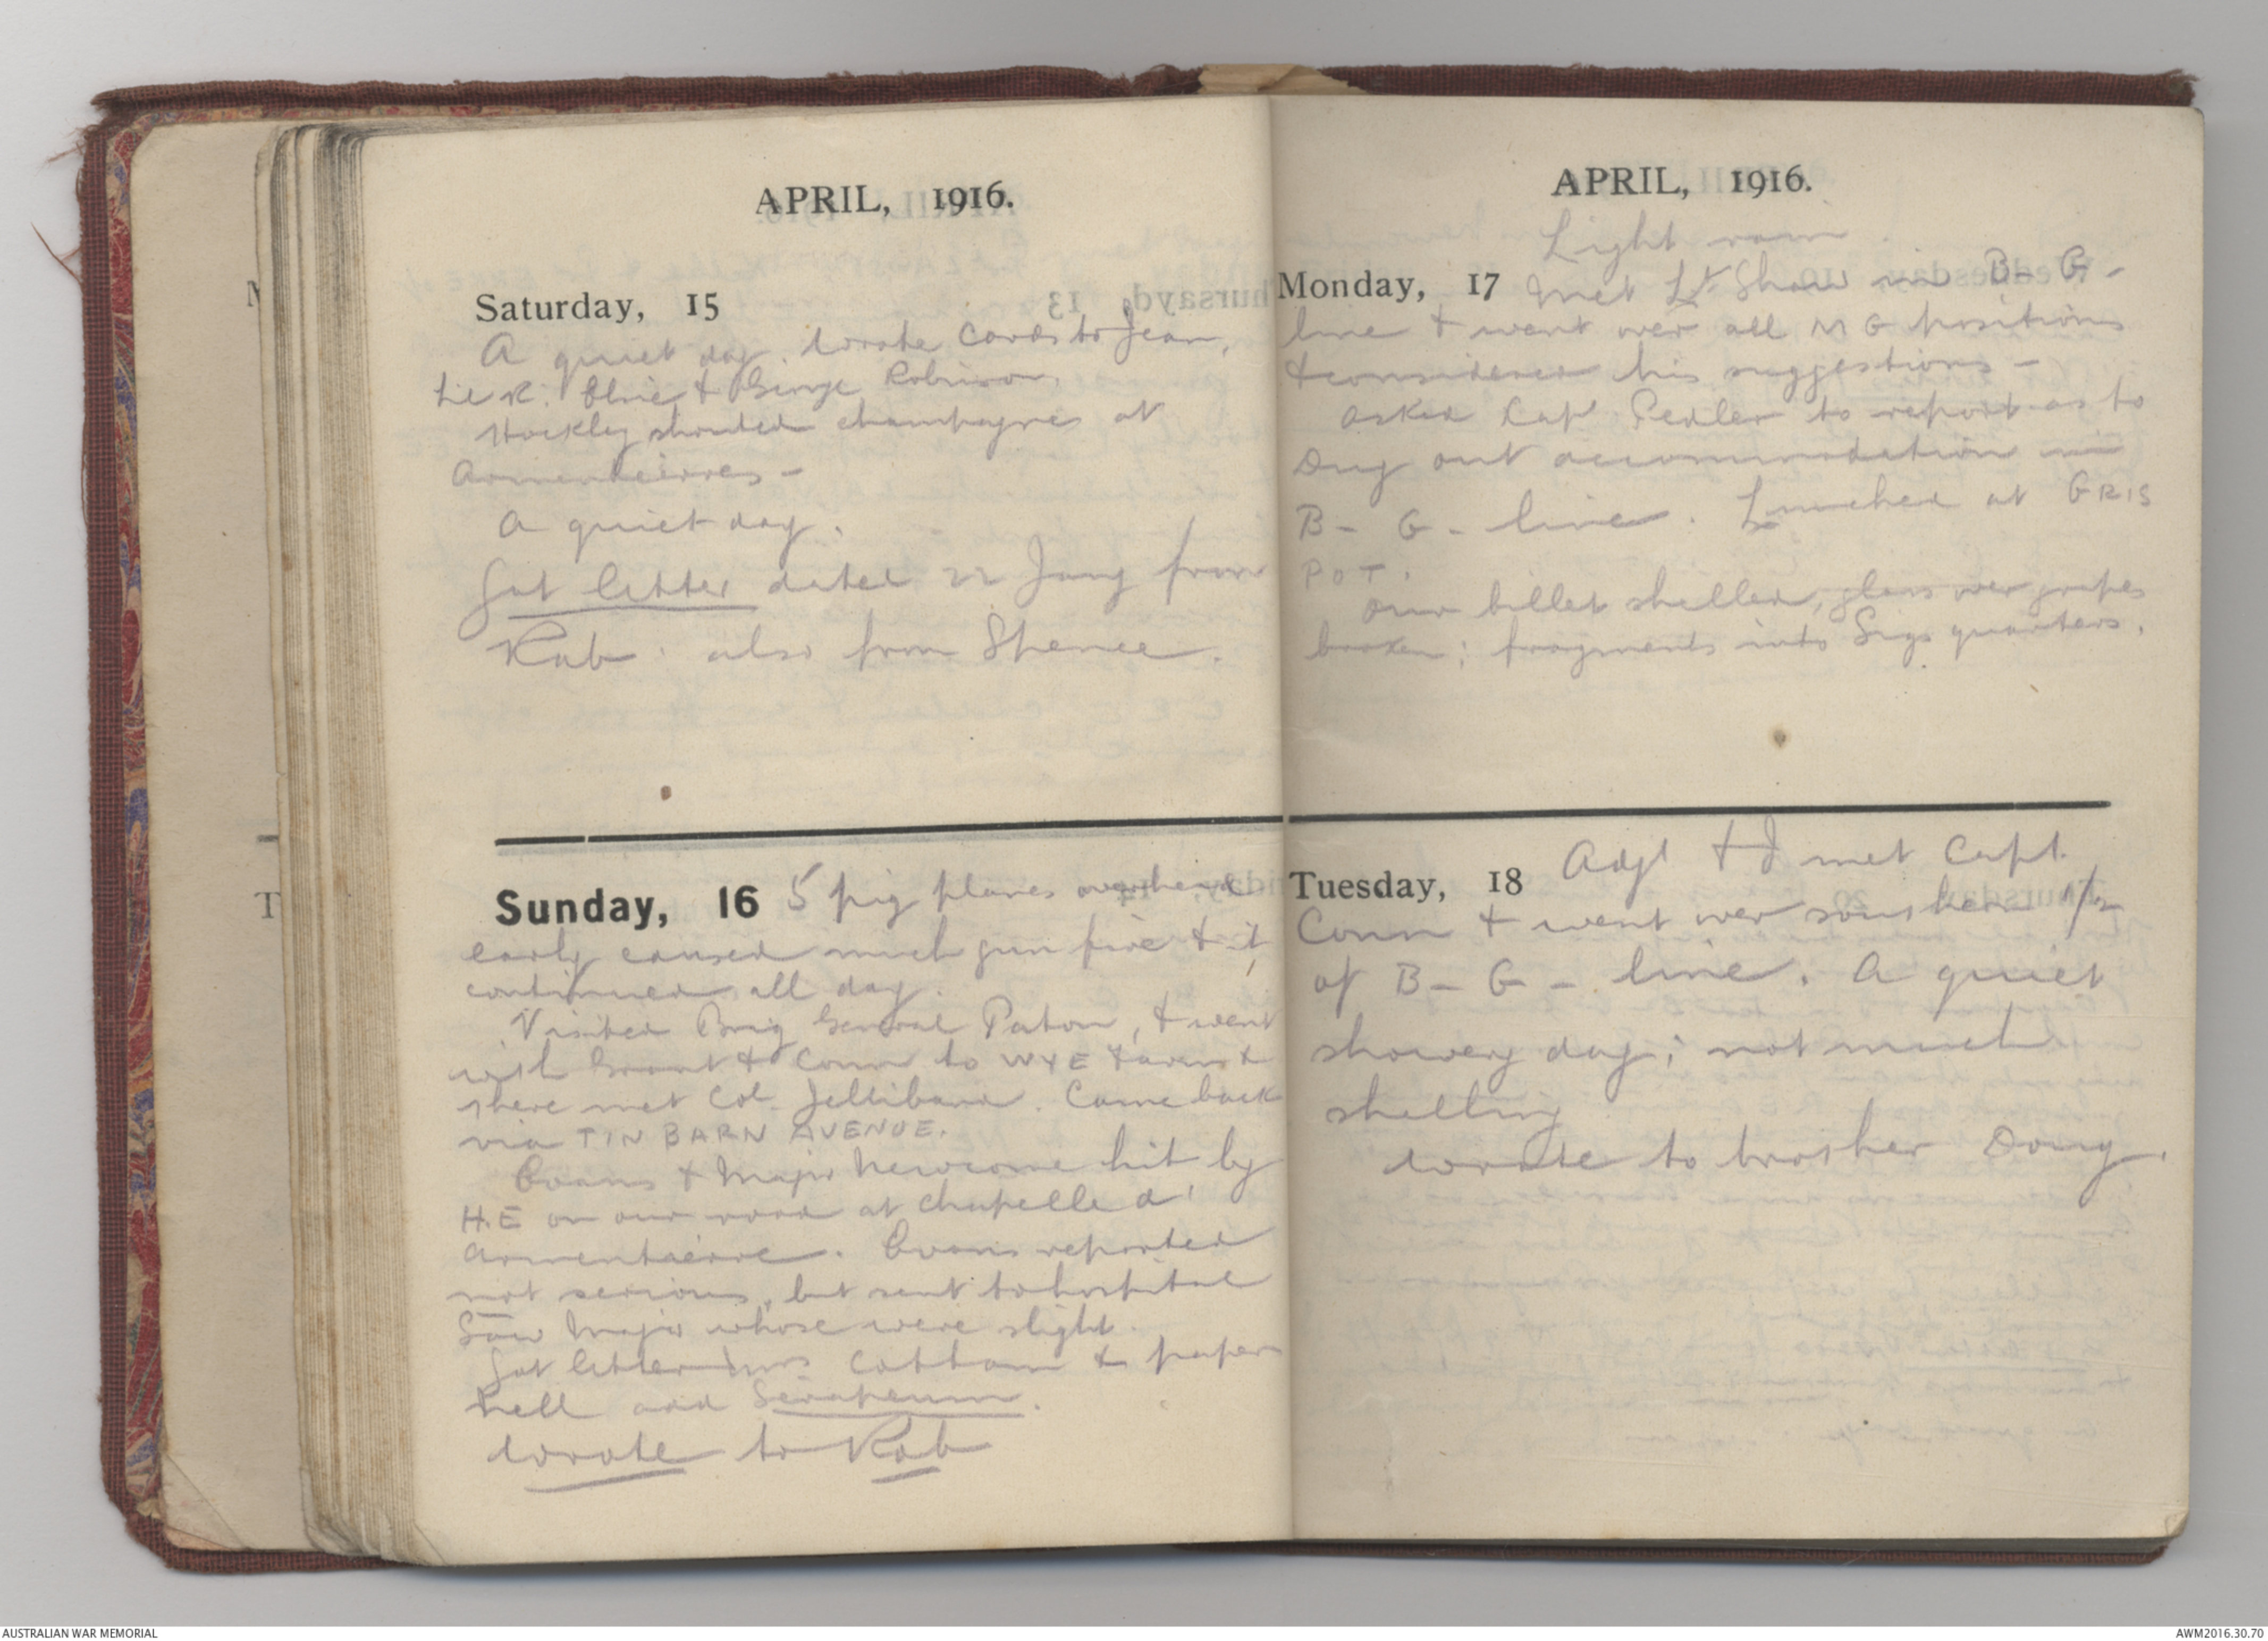 APRIL, 1916.
Saturday, 15
A quiet day. Wrote cards to Jean,
Elsie & George Robinson.
Hockley shouted champagne at
Armentieirres -
A quiet day.
Got letter dated 22 Jany from
Rab. also from Spence.
Sunday, 16 5 pig planes overhead
early caused much gun fire & it
continued all day.
Visited Brig General Paton, & went
with Grant & Conn to WYE Farm &
there met Col. Jellibard. Came back
via TIN BARN AVENUE.
Evans & Major Newcome hit by
H.E on our road at Chapelle d'
Armentaeirre. Evans reported
not serious, but sent to hospital
Saw Major whose were slight.
Got letter Mrs Cottam & paper
Nell and Serapeum.
Wrote to Rab
APRIL, 1916.
Light rain
Monday, 17 Met Lt Shaw in B- G-
line & went over all M G positions
& considered his suggestions -
Asked Capt Pedler to report as to
Dug out accommodation in
B- G- line. Lunched at GRIS
POT.
Our billet shelled, glass over grapes
broken; fragments into Sigs quarters.
Tuesday, 18 Adjt & I met Capt.
Conn & went over southern 1/2
of B- G- line. A quiet
showery day; not much
shelling
Wrote to brother Doug.
AUSTRALIAN WAR MEMORIAL
AWM2016.30.70